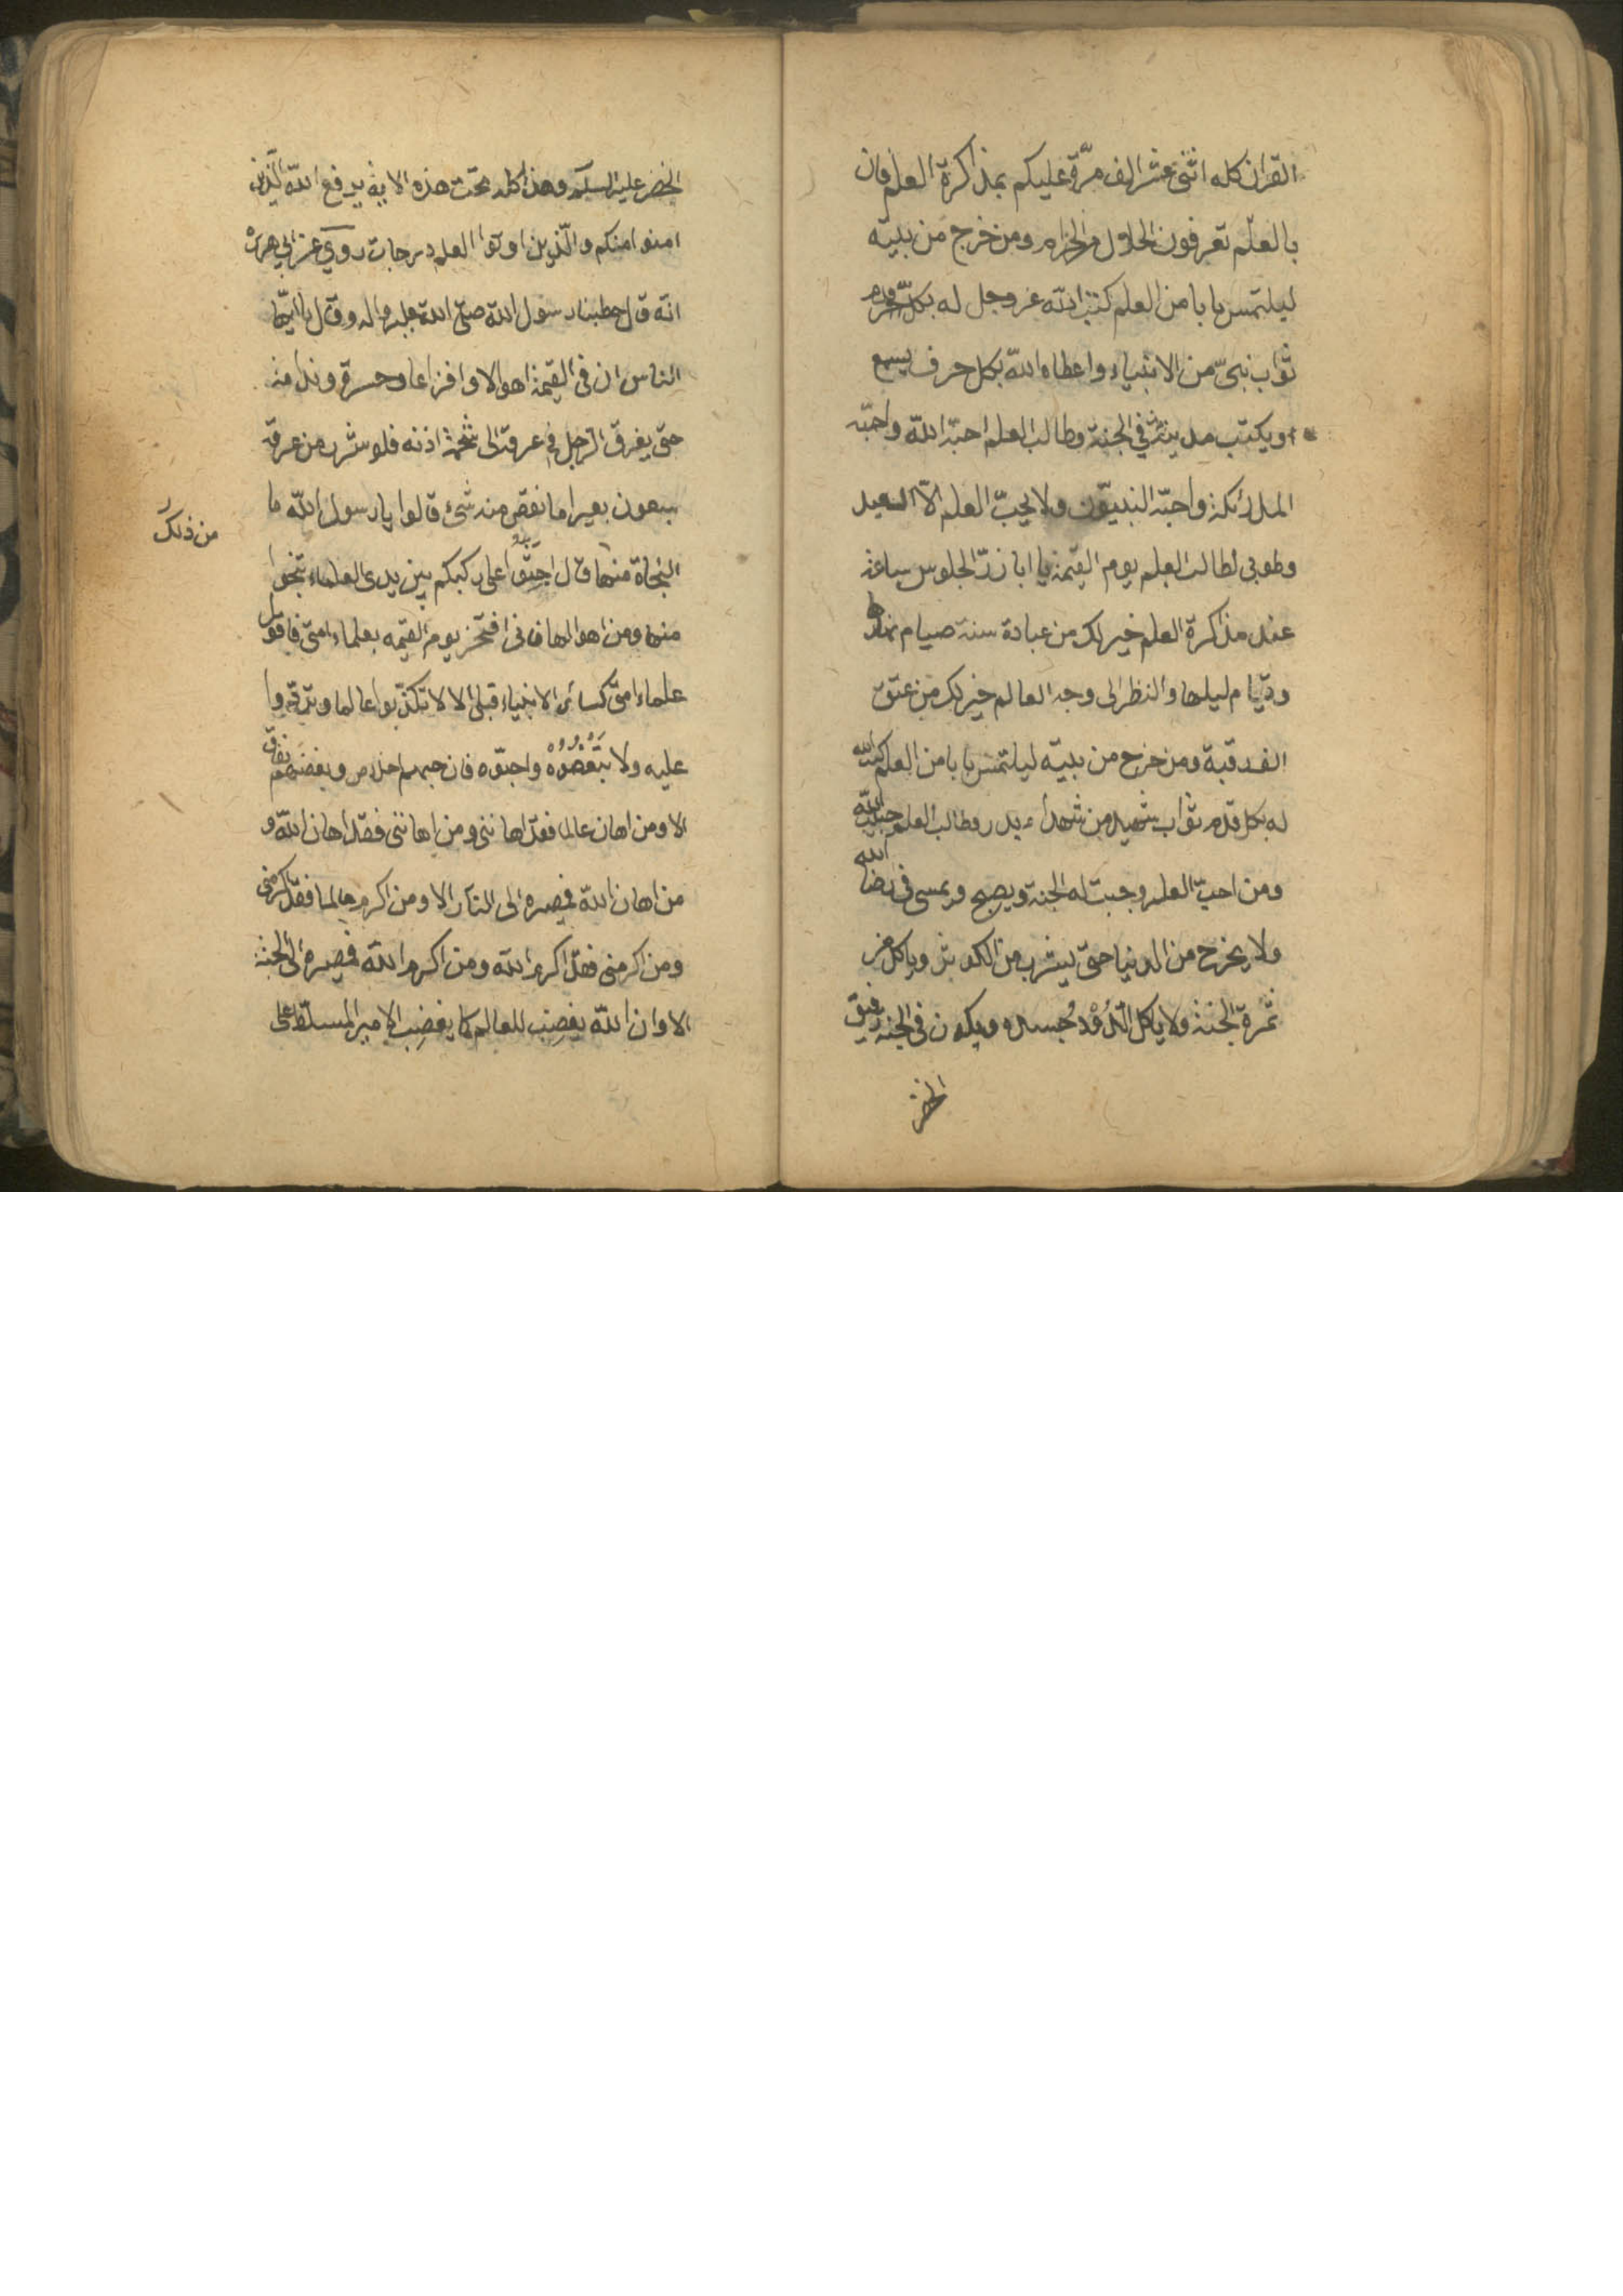 القران كله اثنى عشر الف مرّة عليكم بمذاكرة العلم فان
بالعلم تعرفون الحلال من الحرام ومن خرج من بيته
ليلتمس بابا من العلم كتب الله عز وجل له بكلّ قدم
ثواب نبىّ من الانبياء واعطاه الله بكل حرف يسمع
او يكتب مدينة في الجنة وطالب العلم احبّه الله واحبّه
الملائكة واحبّه النبيّون ولا يحبّ العلم الّا السعيد
وطوبى لطالب العلم يوم القيمة يا ابا ذرّ الجلوس ساعة
عند مذاكرة العلم خير لك من عبادة سنة صيام نهارها
وقيام ليلها والنظر الى وجه العالم خير لك من عتق
الف رقبة ومن خرج من بيته ليلتمس بابا من العلم كتب الله
له بكل قدم ثواب شهيد من شهداء بدر وطالب العلم حبيب الله
ومن احبّ العلم وجبت له الجنة ويصبح ويمسى في رضا الله
ولا يخرج من الدنيا حتى يشرب من الكوثر وياكل من
ثمرة الجنة ولا ياكل الدُّوْدُ جسده ويكون فى الجنة رفيق
الخضر
الخضر عليه السلام وهذا كله تحت هذه الاية يرفع الله الّذين
امنوا منكم والّذين اوتوا العلم درجات روي عن ابي هريره
انه قال خطبنا رسول الله صلى الله عليه واله وقال يا ايّها
الناس ان فى القيمة اهوالا وافزاعا وحسرة وندامة
حتى يغرق الرجل في عرقه الى شحمة اذنه فلو شرب من عرقه
سبعون بعيرا ما نقص منه شئ قالوا يا رسول الله ما
من ذلك
النجاة منها قال اجثوا على ركبكم بين يدى العلماء تنجوا
منها ومن اهوالها فانى افتخر يوم القيمه بعلماء امتى فاقول
علماء امتى كسائر الانبياء قبلى الا لا تكذّبوا عالما وتردّوا
عليه ولا تبغضوه واحبّوه فان حبهم اخلاص وبغضهم نفاق
الا ومن اهان عالما فقد اهاننى ومن اهاننى فقد اهان الله و
من اهان الله فمصيره الى النار الا ومن اكرم عالما فقد اكرمنى
ومن اكرمنى فقد اكرم الله ومن اكرم الله فمصيره الى الجنة
الا وان الله يغضب للعالم كما يغضب الامير المسلّط على